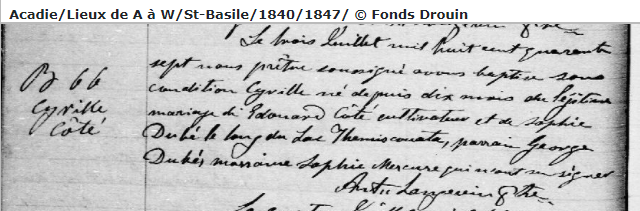 Acadie/Lieux de A à W/St-Basile/1840/1847/ © Fonds Drouin
B 66
Cyrille
Côté
Le trois Juillet mil huit cent quarante
sept nous prêtre soussigné avons baptisé sous
condition Cyrille né depuis dix mois du légitime
mariage de Edouard Côté cultivateur et de Sophie
Dubé le long du Lac Themiscouata, parrain George
Dubés marraine Sophie Mercure qui n'ont su signer
Ant: Langevin Ptre